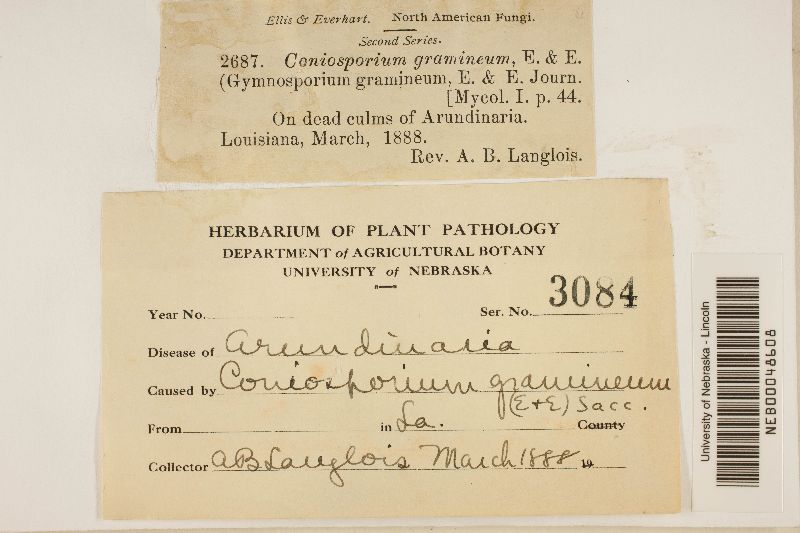 Ellis & Everhart. North American Fungi.
Second Series.
2687. Coniosporium gramineum, E. & E.
(Gymnosporium gramineum, E. & E. Journ.
[Mycol. I. p. 44.
On dead culms of Arundinaria.
Louisiana, March, 1888.
Rev. A. B. Langlois.
HERBARIUM OF PLANT PATHOLOGY
DEPARTMENT of AGRICULTURAL BOTANY
UNIVERSITY of NEBRASKA
Year No. Ser. No. 3084
Disease of Arundinaria
Caused by Coniosporium gramineum
(E+E) Sacc.
From in La. County
Collector AB Langlois March 1888 19
University of Nebraska - Lincoln
NEB00048608